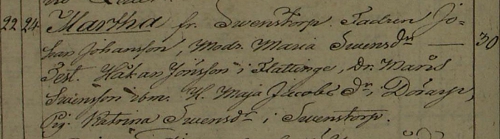 22 24 Martha fr. Swenstorp. Fadren Jo-
han Johansson, Modr. Maria Swensdr — 30
Test. Håkan Jönsson i Flattinge, dr. Marus
Swensson ibm. H. Maja Jacobs Dr. i Dörarp,
Pig. Katrina Swensdr i Swenstorp.